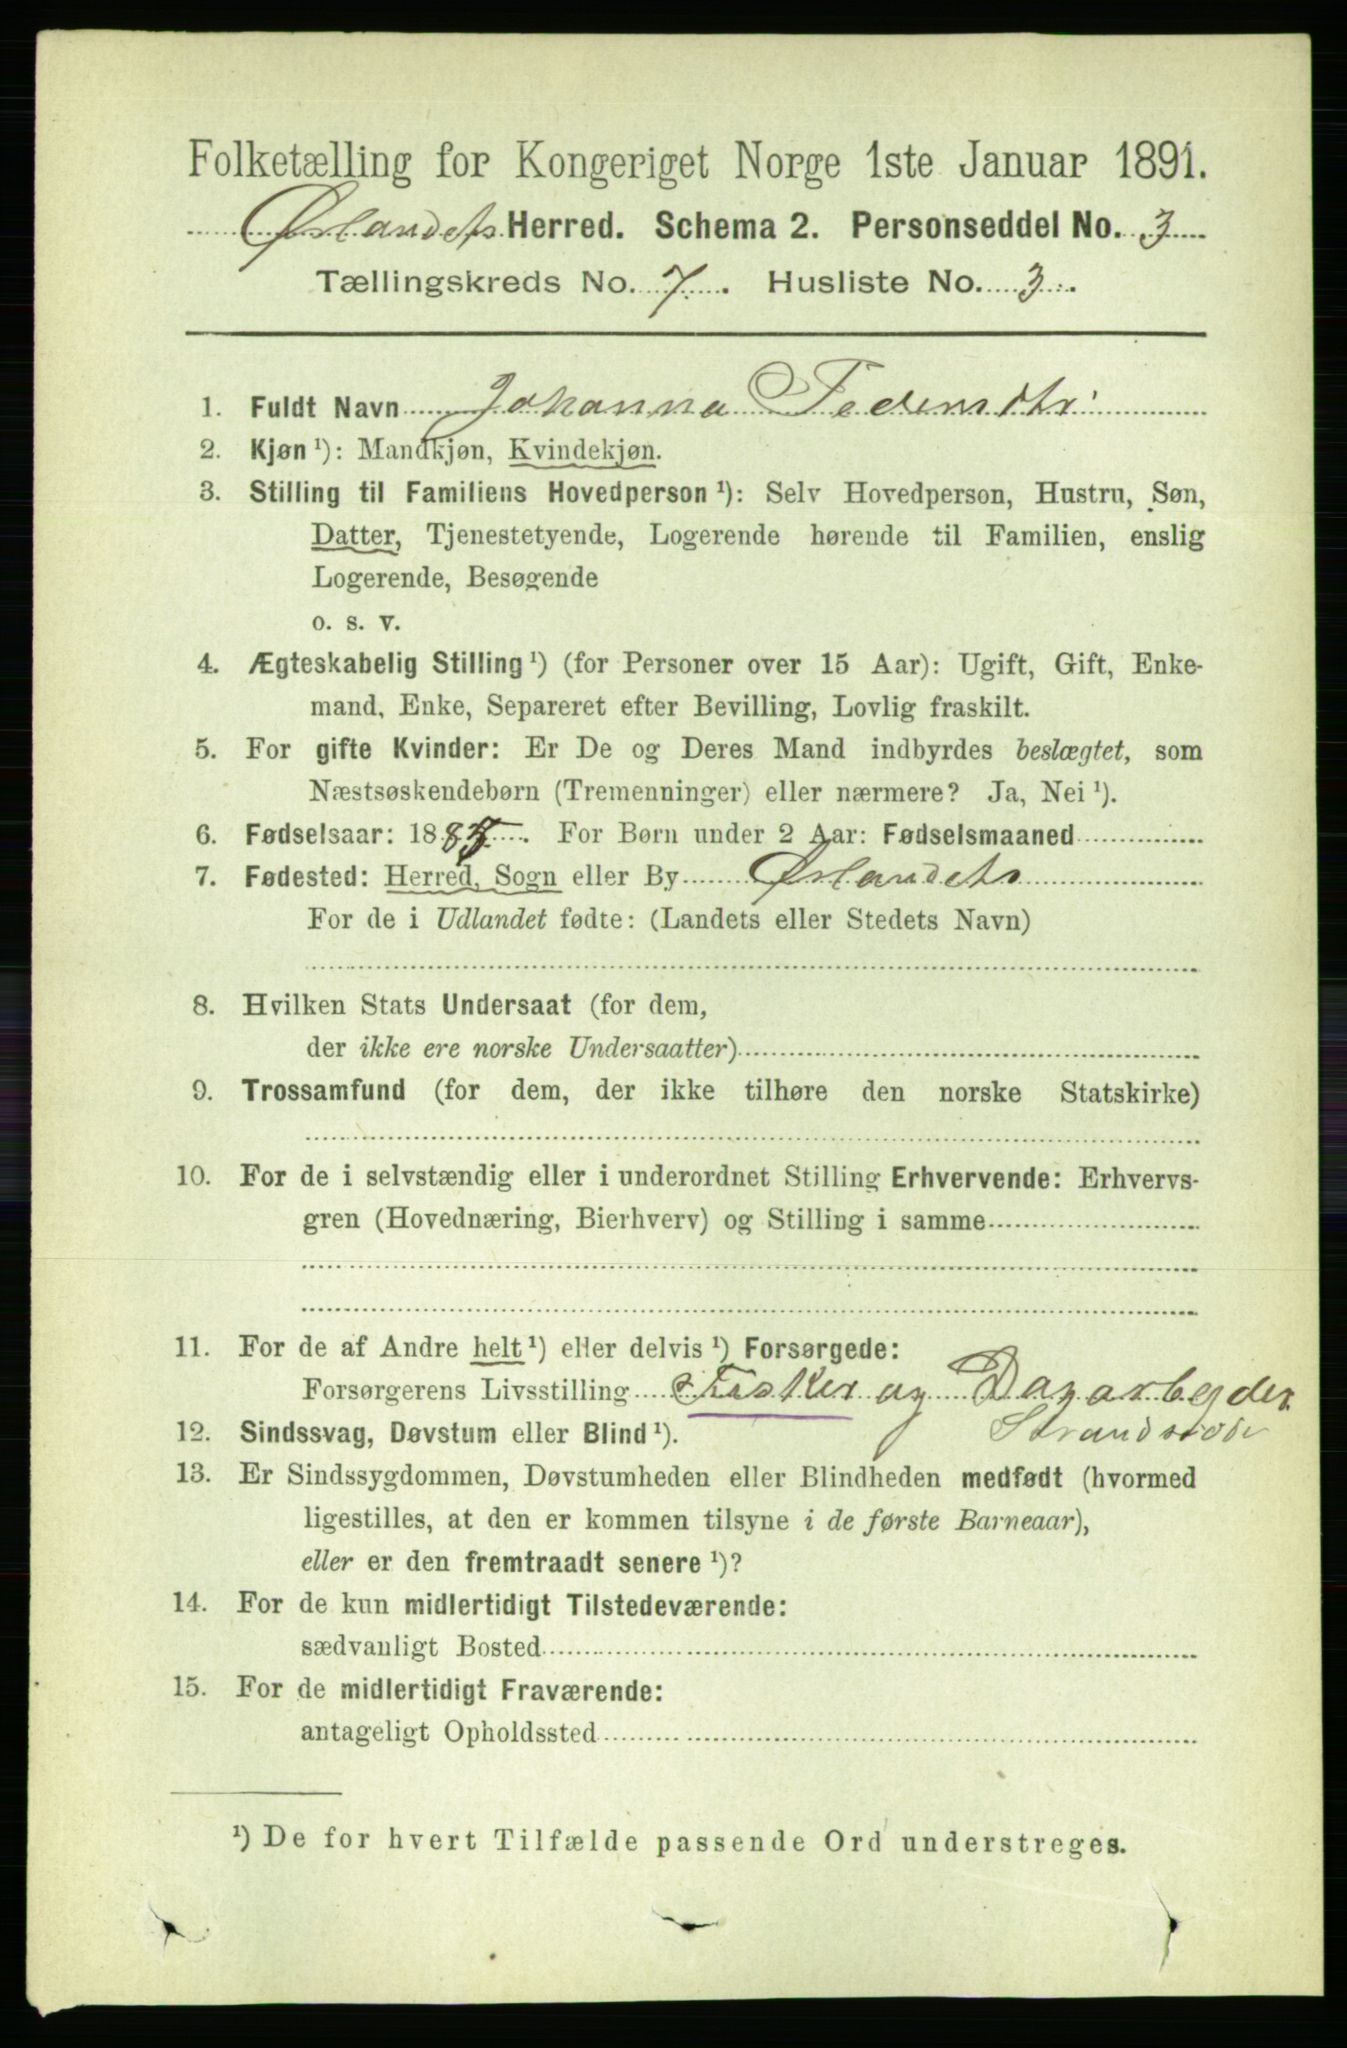 Folketælling for Kongeriget Norge 1ste Januar 1891.
Ørlandets Herred. Schema 2. Personseddel No. 3
Tællingskreds No. 7. Husliste No. 3.
1. Fuldt Navn Johanna Pedersdtr
2. Kjøn ¹): Mandkjøn, Kvindekjøn.
3. Stilling til Familiens Hovedperson ¹): Selv Hovedperson, Hustru, Søn,
Datter, Tjenestetyende, Logerende hørende til Familien, enslig
Logerende, Besøgende
o. s. v.
4. Ægteskabelig Stilling ¹) (for Personer over 15 Aar): Ugift, Gift, Enke-
mand, Enke, Separeret efter Bevilling, Lovlig fraskilt.
5. For gifte Kvinder: Er De og Deres Mand indbyrdes beslægtet, som
Næstsøskendebørn (Tremenninger) eller nærmere? Ja, Nei ¹).
6. Fødselsaar: 18 . For Børn under 2 Aar: Fødselsmaaned
7. Fødested: Herred, Sogn eller By Ørlandets
For de i Udlandet fødte: (Landets eller Stedets Navn)
8. Hvilken Stats Undersaat (for dem,
der ikke ere norske Undersaatter)
9. Trossamfund (for dem, der ikke tilhøre den norske Statskirke)
10. For de i selvstændig eller i underordnet Stilling Erhvervende: Erhvervs-
gren (Hovednæring, Bierhverv) og Stilling i samme
11. For de af Andre helt ¹) eller delvis ¹) Forsørgede:
Forsørgerens Livsstilling Fisker og Dagarbeyder
Strandsidder
12. Sindssvag, Døvstum eller Blind ¹).
13. Er Sindssygdommen, Døvstumheden eller Blindheden medfødt (hvormed
ligestilles, at den er kommen tilsyne i de første Barneaar),
eller er den fremtraadt senere ¹)?
14. For de kun midlertidigt Tilstedeværende:
sædvanligt Bosted
15. For de midlertidigt Fraværende:
antageligt Opholdssted
¹) De for hvert Tilfælde passende Ord understreges.